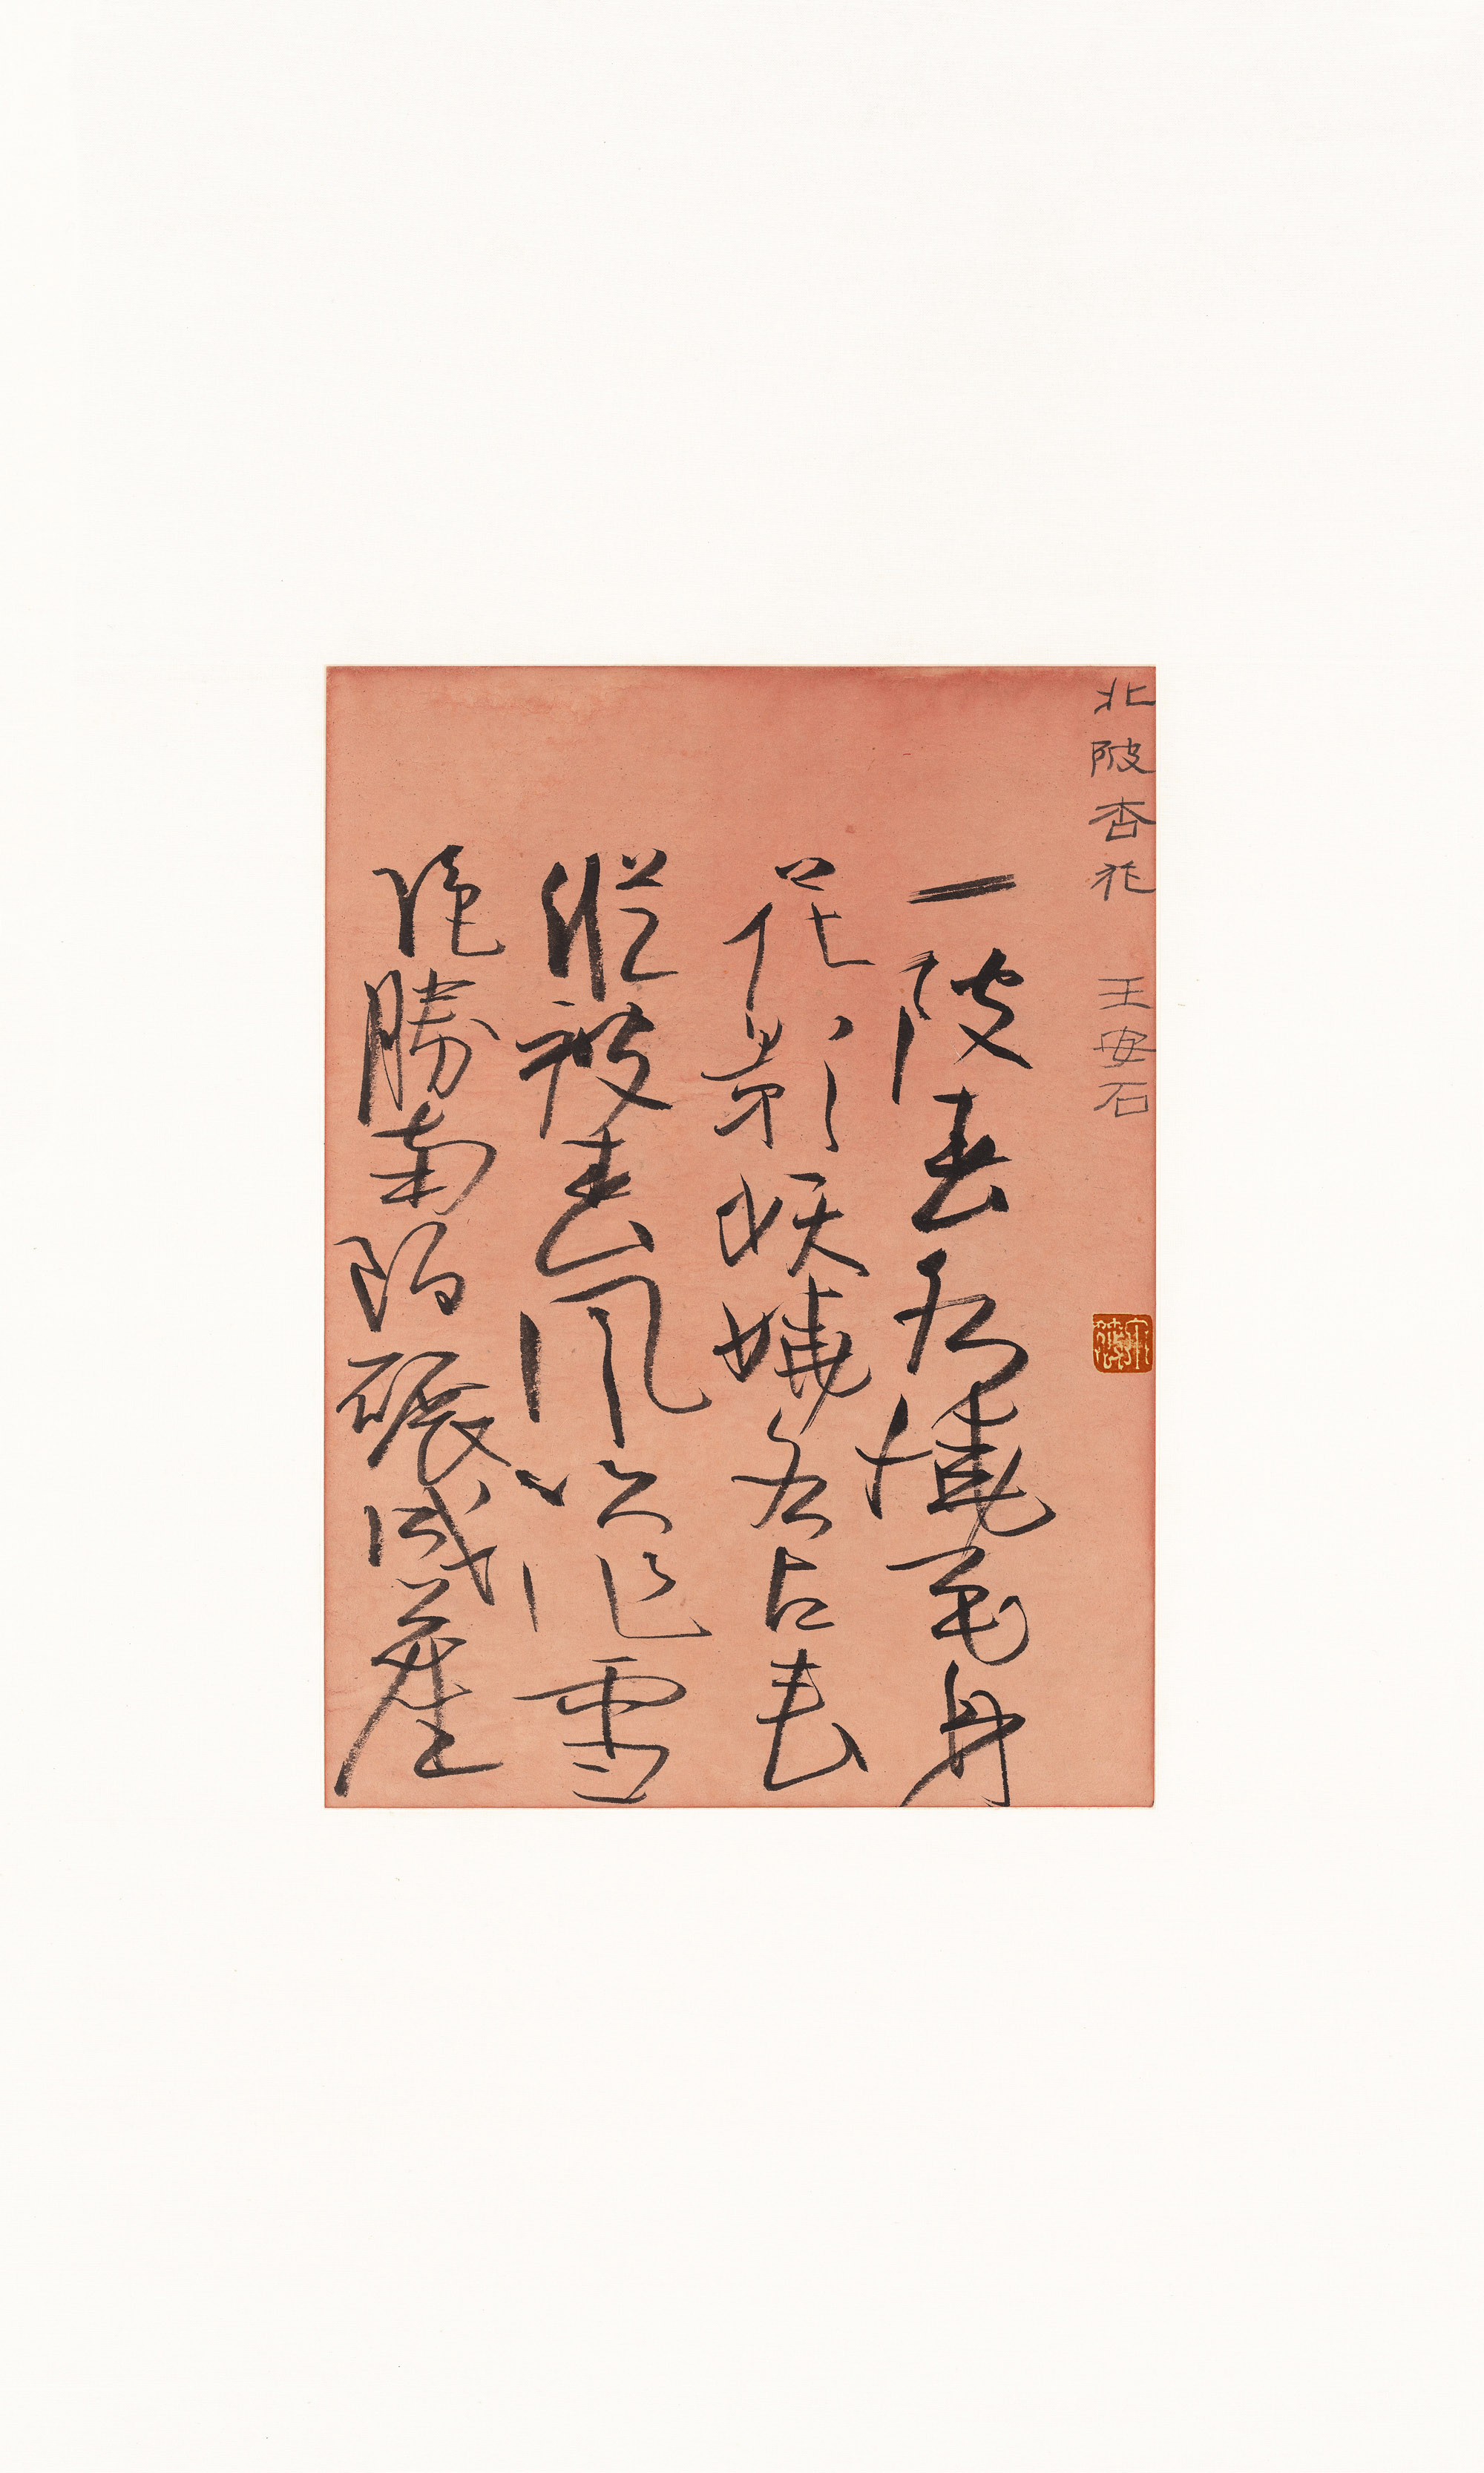 北陂杏花 王安石
一陂春水繞花身
花影妖嬈各占春
縱被春風吹作雪
絕勝南陌碾成塵